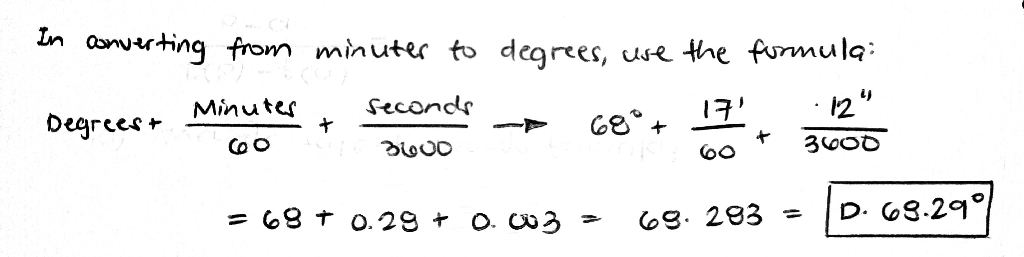 In converting from minutes to degrees, use the formula:
Degrees + Minutes/60 + Seconds/3600 → 68° + 17'/60 + 12"/3600
= 68 + 0.28 + 0.003 = 68.283 = D. 68.29°